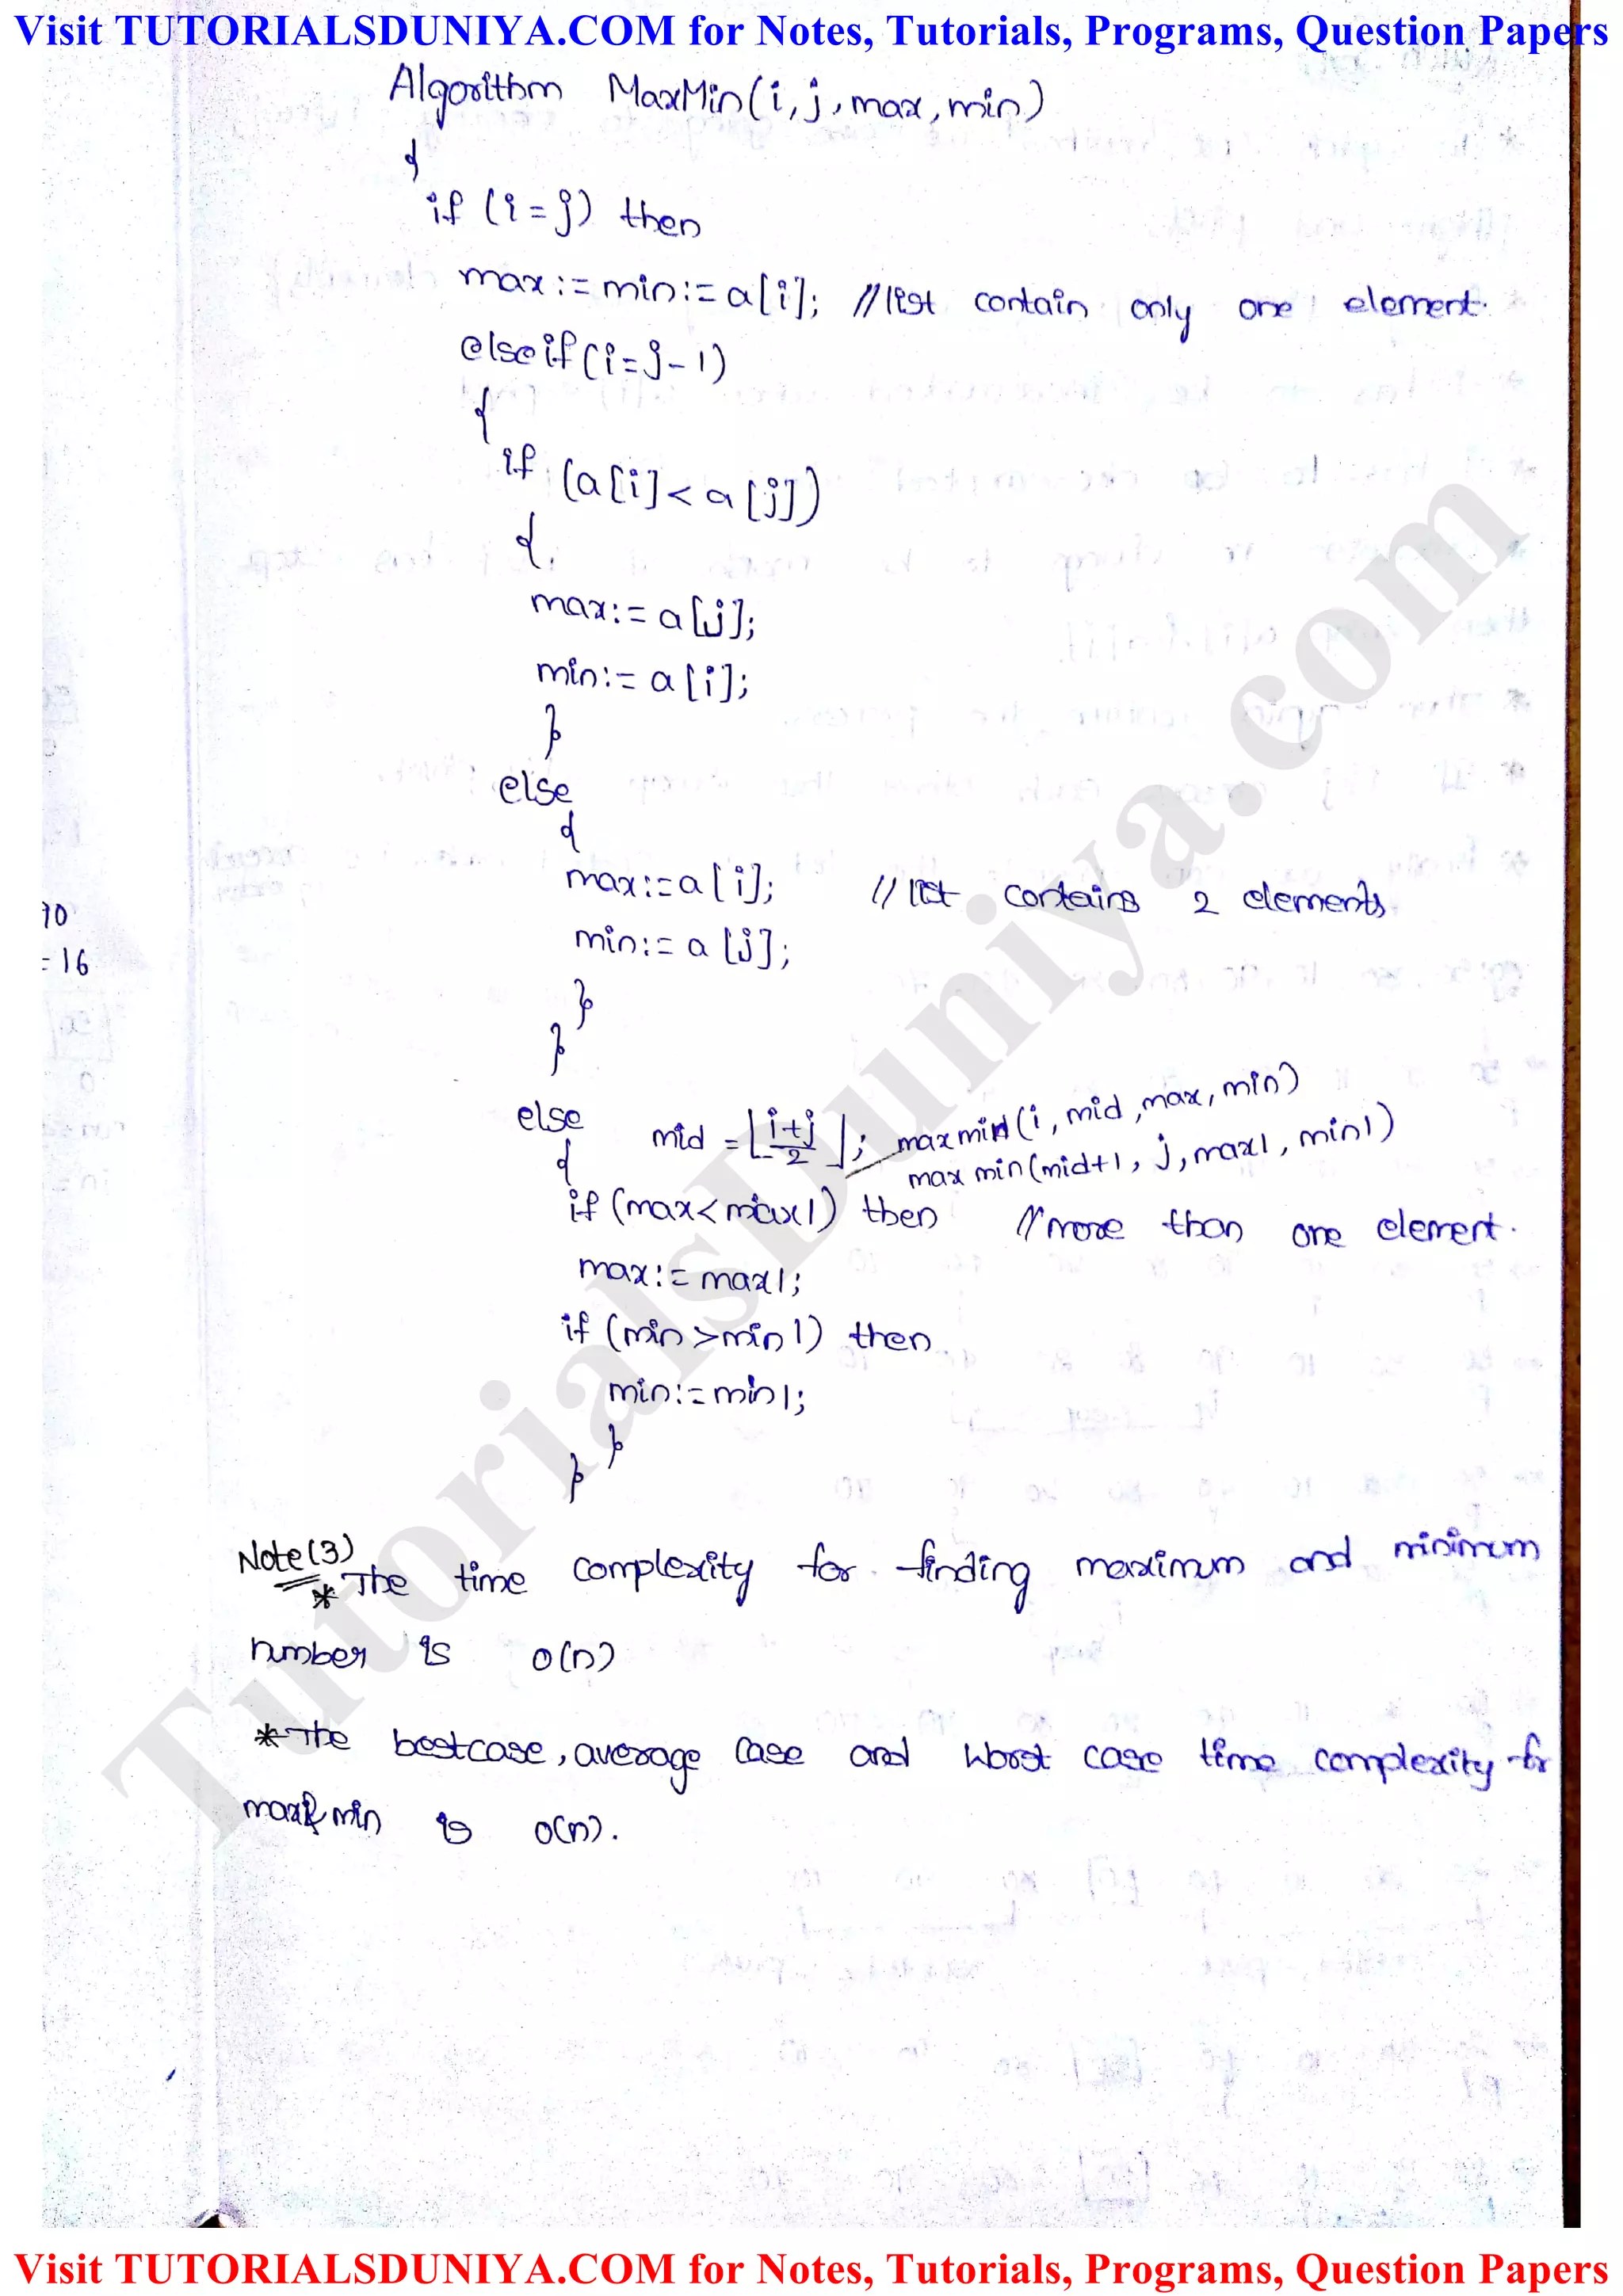 Visit TUTORIALSDUNIYA.COM for Notes, Tutorials, Programs, Question Papers
Algorithm MaxMin(i, j, max, min)
{
if (i = j) then
max := min := a[i]; // list contain only one element.
elseif (i = j - 1)
{
if (a[i] < a[j])
{
max := a[j];
min := a[i];
}
else
{
max := a[i]; // list contains 2 elements
10
min := a[j];
= 16
}
}
else mid = ⌊i+j/2⌋; maxmin(i, mid, max, min)
{ max min(mid+1, j, max1, min1)
if (max < max1) then // more than one element.
max := max1;
if (min > min1) then
min := min1;
}
}
Note(3)
* The time complexity for finding maximum and minimum
number is o(n)
* The bestcase, average case and worst case time complexity for
max & min is o(n).
TutorialsDuniya.com
Visit TUTORIALSDUNIYA.COM for Notes, Tutorials, Programs, Question Papers